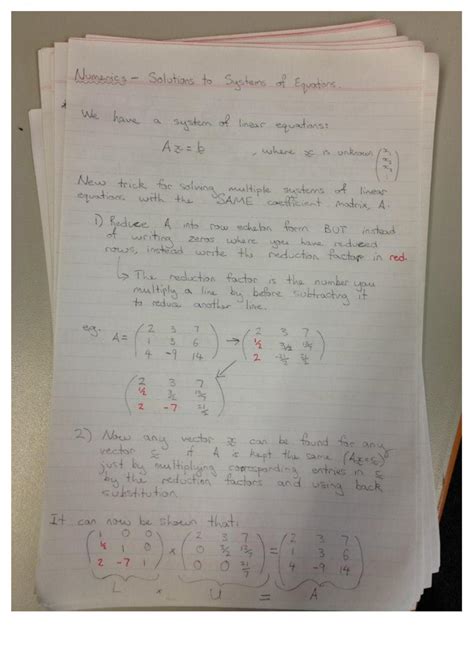 Numerics - Solutions to Systems of Equations.
We have a system of linear equations:
A x = b , where x is unknown
New trick for solving multiple systems of linear
equations with the SAME coefficient matrix, A.
1) Reduce A into row echelon form BUT instead
of writing zeros where you have reduced
rows, instead write the reduction factor in red.
↳ The reduction factor is the number you
multiply a line by before subtracting it
to reduce another line.
eg. A = ( 2 3 7 ) → ( 2 3 7 )
1 3 6 1/2 3/2
4 -9 14 2
( 2 3 7 )
1/2 3/2
2 -7
2) Now any vector x can be found for any
vector c if A is kept the same (Ax=c)
just by multiplying corresponding entries in c
by the reduction factors and using back
substitution.
It can now be shown that:
( 1 0 0 ) × ( 2 3 7 ) = ( 2 3 7 )
1 0 0 3/2 1 3 6
2 -7 1 0 0 4 -9 14
L × U = A